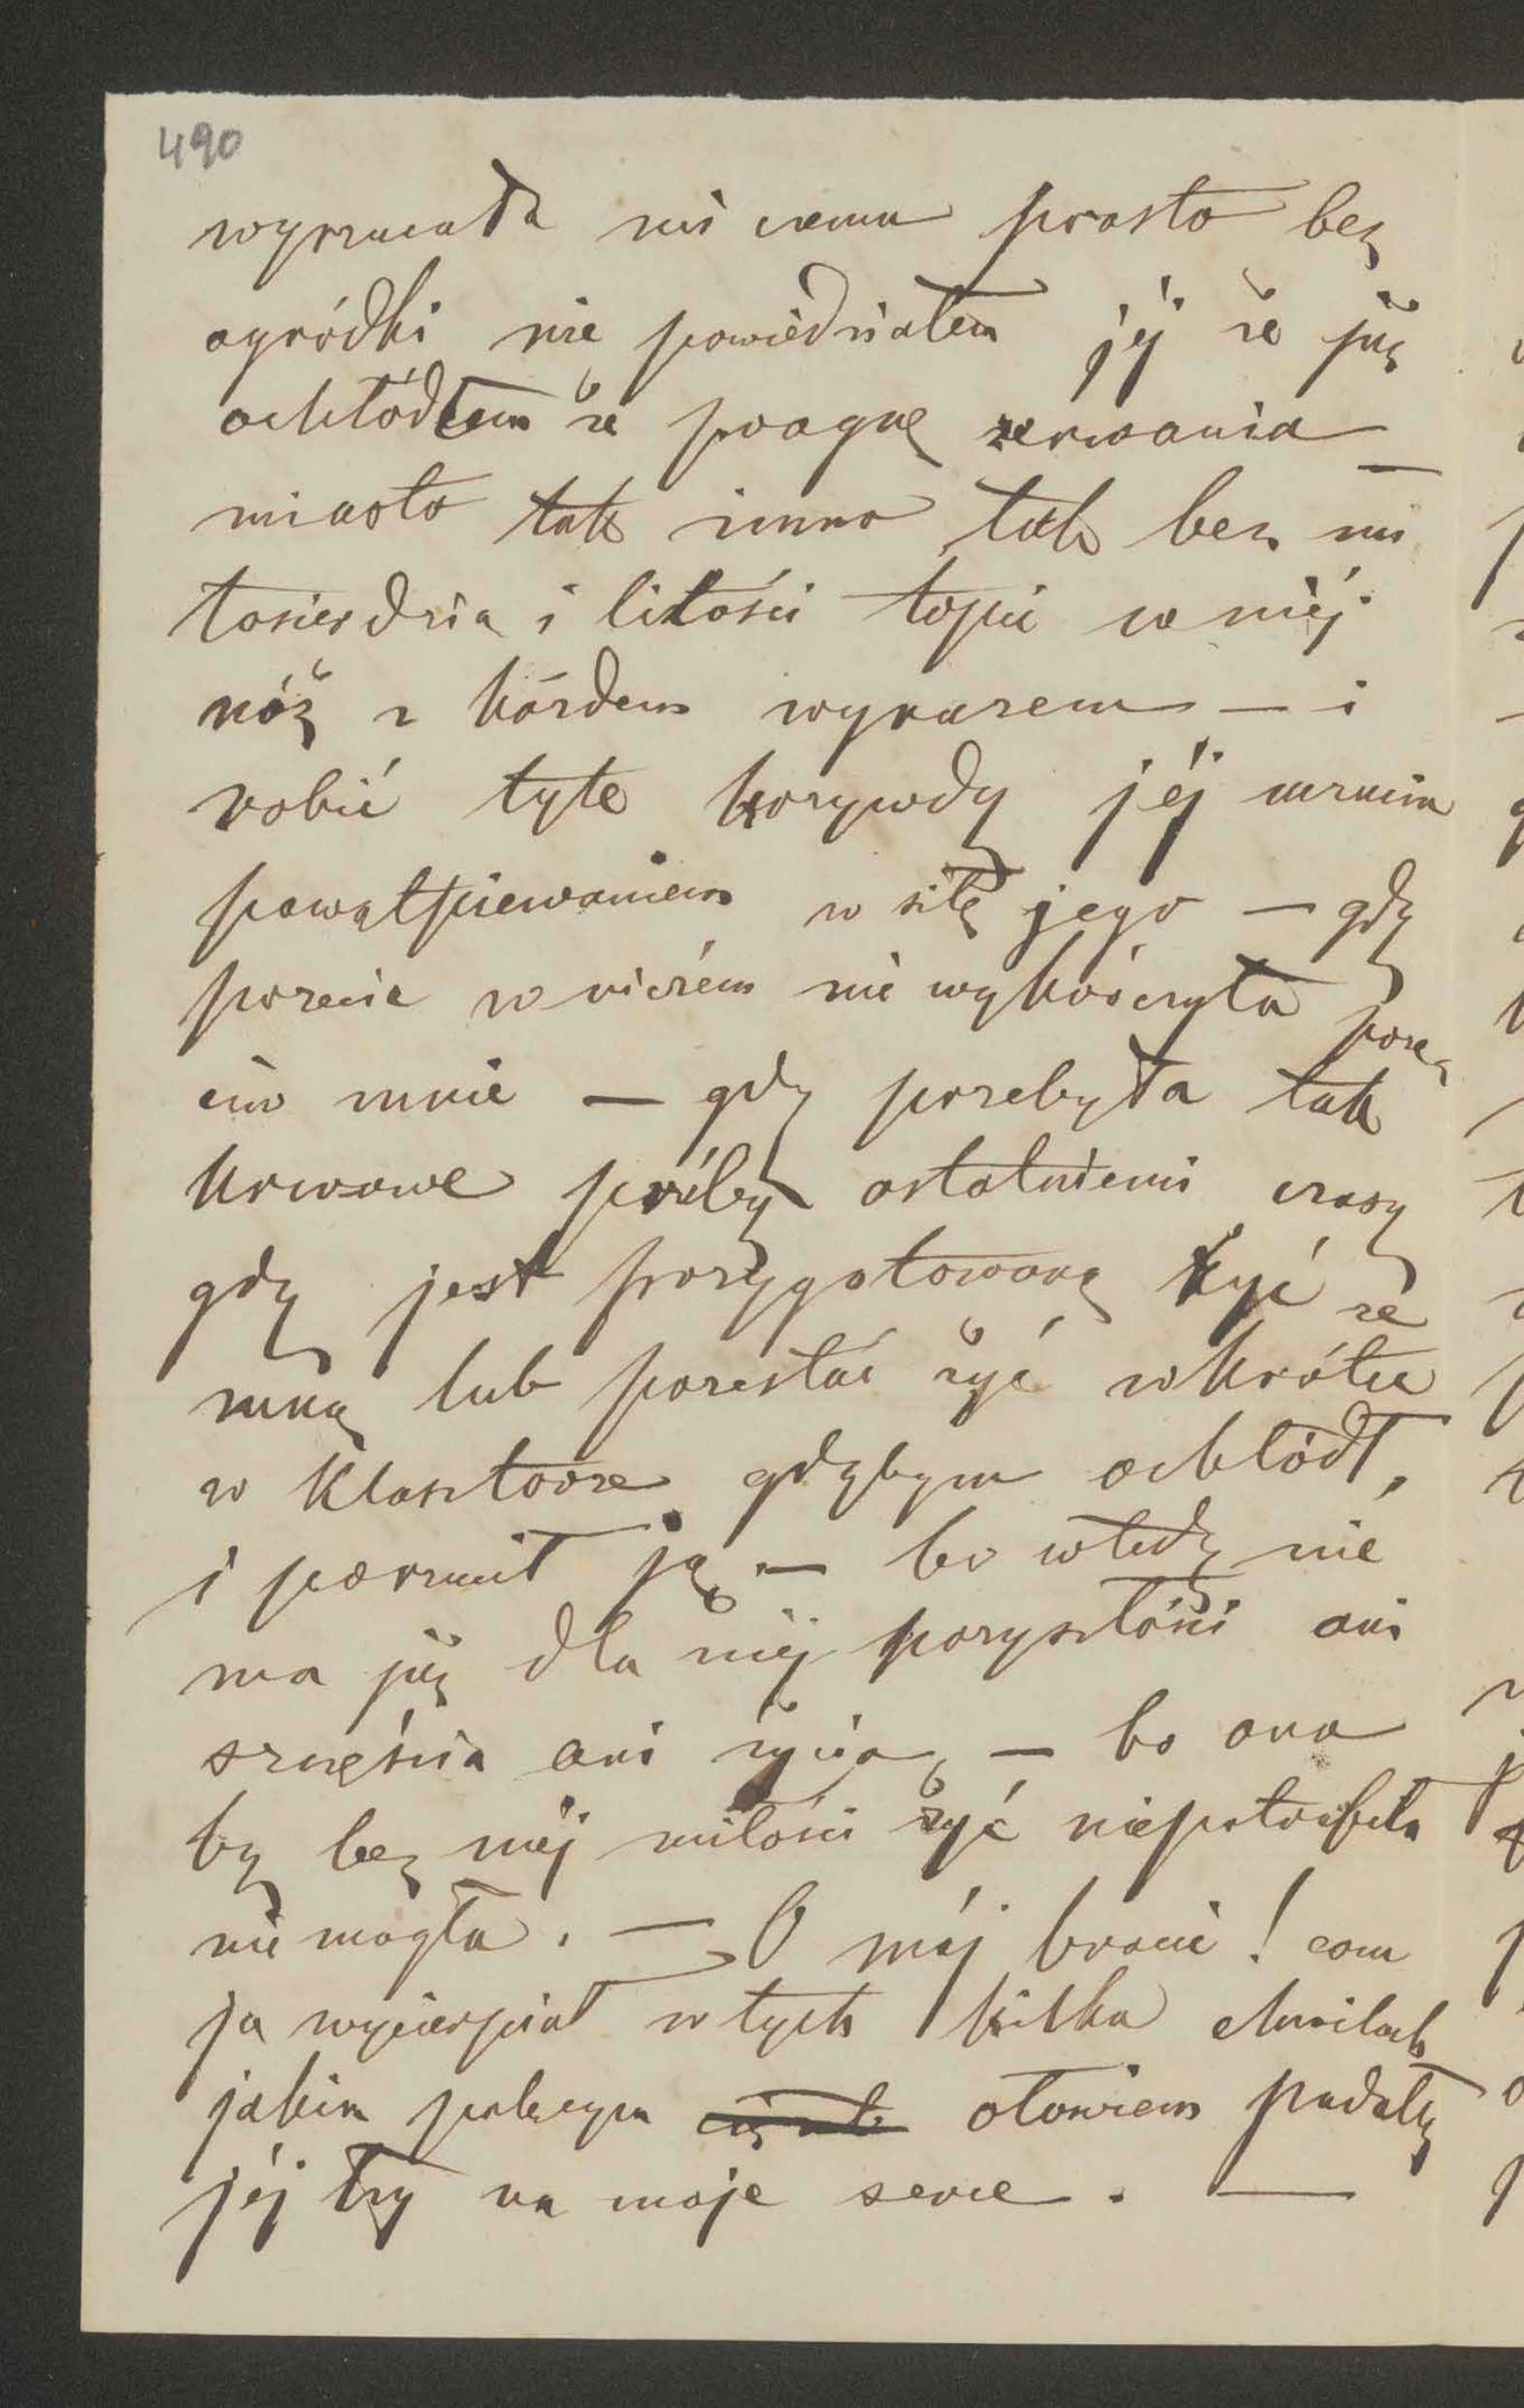 490
wyrzucała mi czemu prosto bez
ogródki nie powiedziałem jéj że już
ochłódłem że pragnę zerwania —
miasto tak zimno tak bez mi
łosierdzia i litości topić w niéj
nóż z każdem wyrazem — i
robić tyle krzywdy jéj uczucia
powątpiewaniem w siłę jego — gdy
przecie w niczém nie wykroczyła prze
ciw mnie — gdy przebyła tak
krwawe próby ostatniemi czasy
gdy jest przygotowaną żyć ze
mną lub przestać żyć wkrótce
w klasztorze gdybym ochłódł,
i porzucił ją — bo wtedy nie
ma już dla niéj przyszłości ani
szczęścia ani życia, — bo ona
by bez méj miłości żyć niepotrafiła
nie mogła. — O mój bracie! com
ja wycierpiał w tych kilku chwilach
jakim palącym ołowiem padały
jéj łzy na moje serce. —